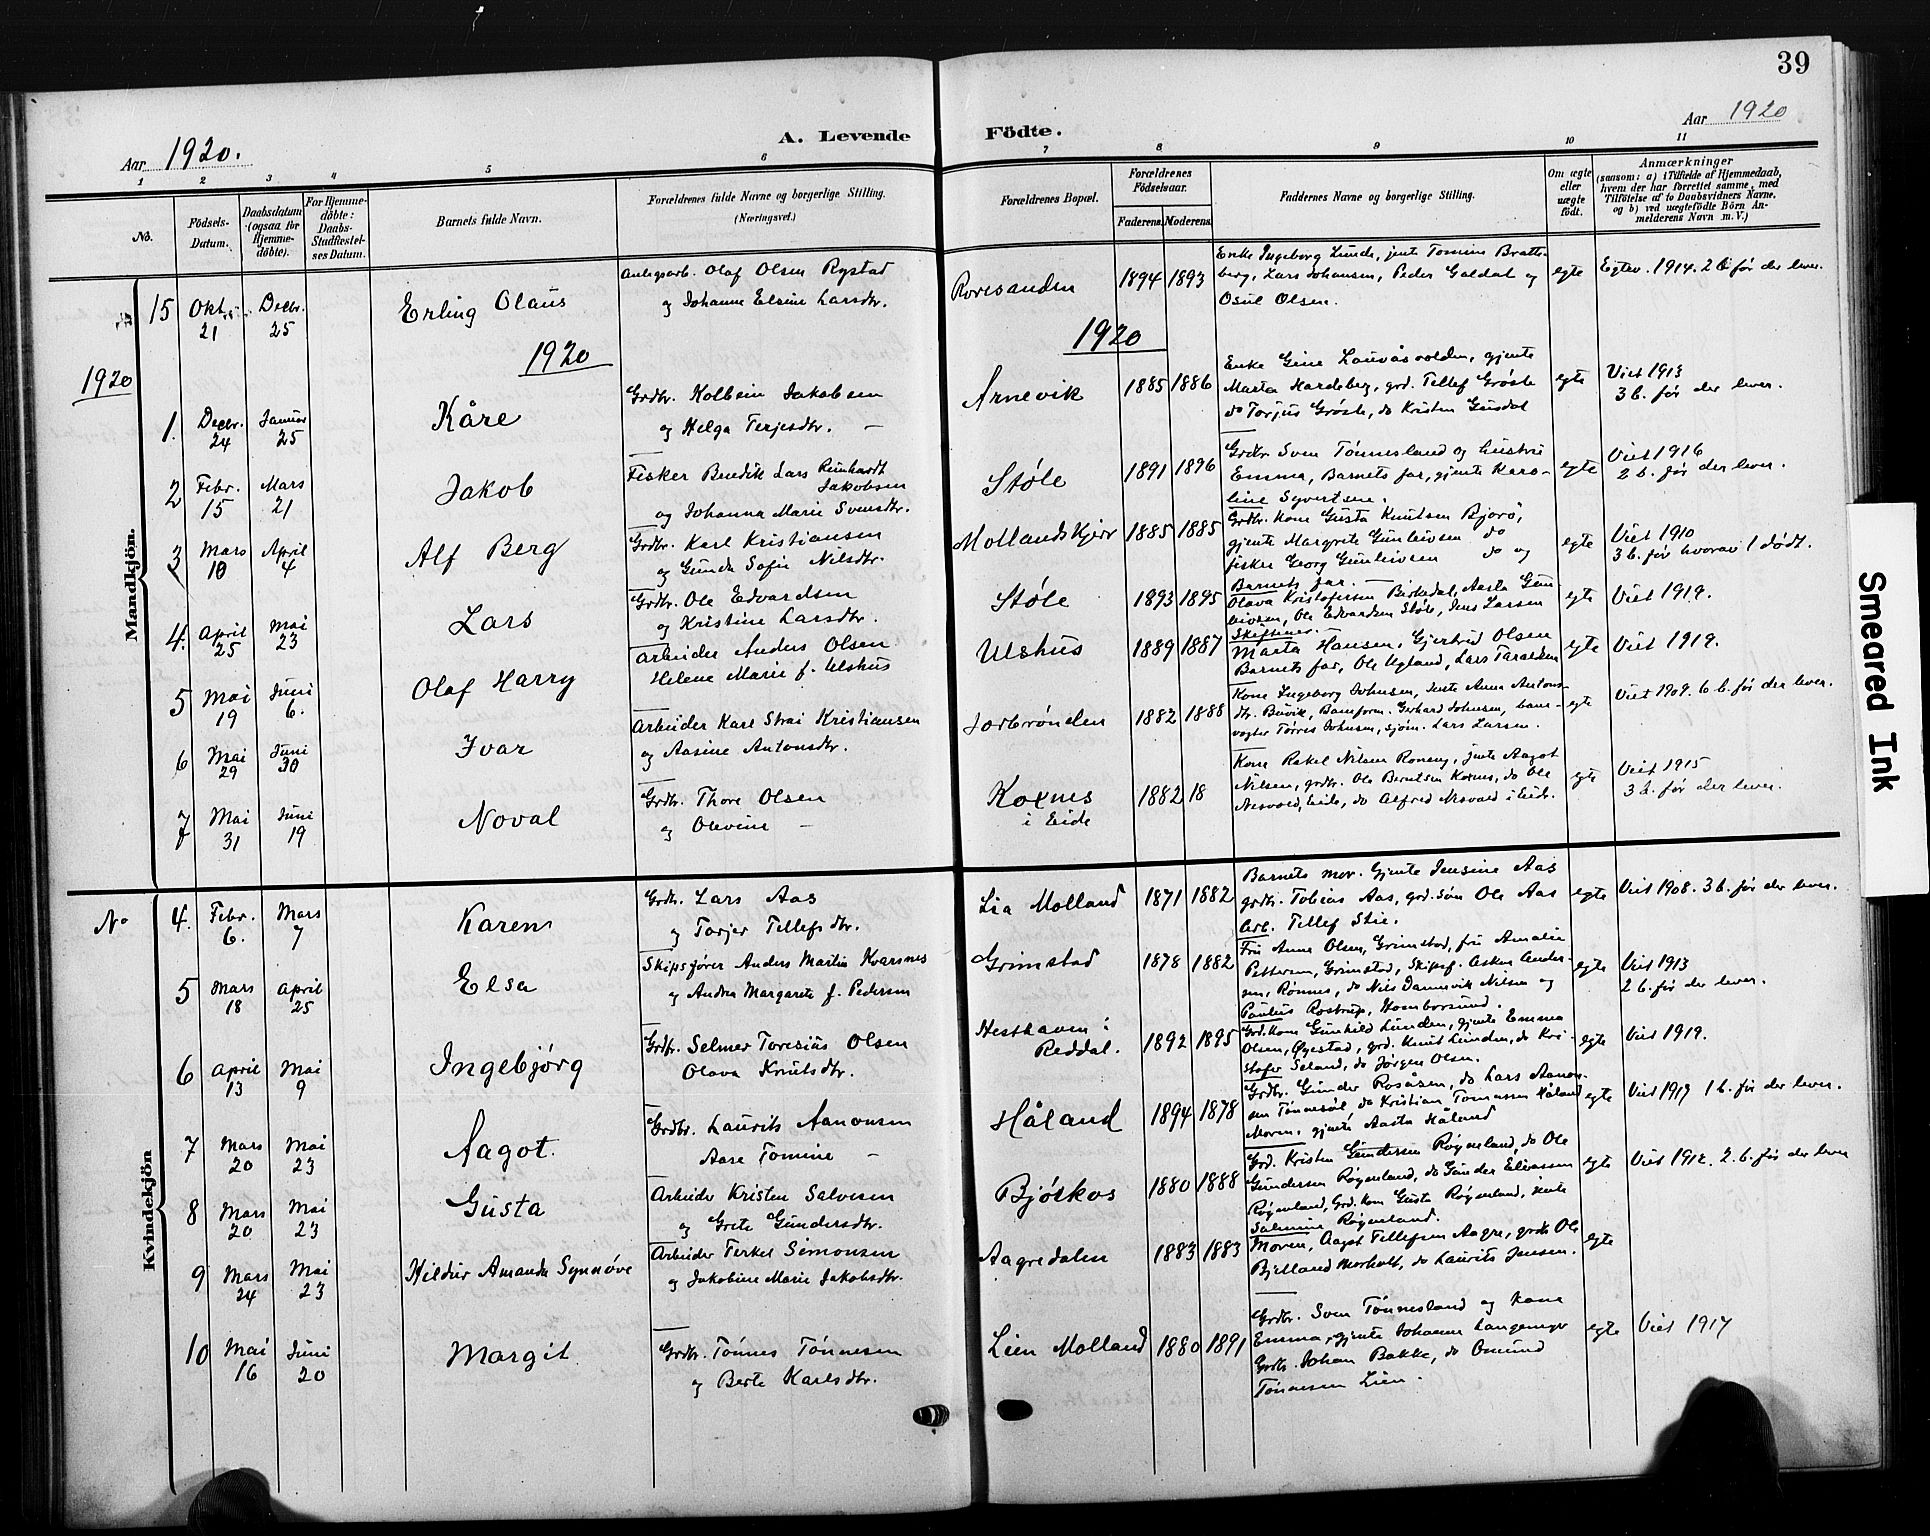 39
Aar 1920.
A. Levende Födte.
Aar 1920
1 2 3 4 5 6 7 8 9 10 11
No.
Födsels-Datum.
Daabsdatum (ogsaa for Hjemme-döbte).
For Hjemme-döbte: Daabs-Stadfæstel-ses Datum.
Barnets fulde Navn.
Forældrenes fulde Navne og borgerlige Stilling. (Næringsvei.)
Forældrenes Bopæl.
Forældrenes Födselsaar.
Faderens. Moderens.
Faddernes Navne og borgerlige Stilling.
Om ægte eller uægte födt.
Anmærkninger
(saasom: a) i Tilfælde af Hjemmedaab,
hvem der har forrettet samme, med
Tilföielse af to Daabsvidners Navne,
og b) ved uægtefödte Börn An-
melderens Navn m. V.)
15 Oktr. 21 Decbr. 25 Erling Olaus
Anlegsarb. Olaf Olsen Rystad
og Johanne Elsine Larsdtr.
Roresanden 1894 1893
Enke Ingeborg Lunde, jent Tomine Bratte-
berg, Lars Johansen, Peder Galdal og
Osul Olsen.
egte
Egtev. 1914. 2 b før der lever.
1920
1920
1920
Mandkjön.
1. Decbr. 24 Januar 25 Kåre
Grdbr. Kolbein Jakobsen
og Helga Terjesdtr. —
Arnevik 1885 1886
Enke Gine Lauvåsvolden, gjente
Marta Hardeberg, grd. Tellef Grøsle
do Torjus Grøsle, do Kristen Gusdal
egte
Viet 1913
3 b. før der lever.
2 Febr. 15 Mars 21 Jakob
Fisker Bendik Lars Reinhardt
Jakobsen
og Johanna Marie Svensdtr.
Støle 1891 1896
Grdbr Sven Tønnesland og hustru
Emma, Barnets far, gjente Karo-
line Syvertsen.
egte
Viet 1916
2 b. før der lever.
3 Mars 10 April 4 Alf Berg
Grdbr. Karl Kristiansen
og Gunda Sofie Nilsdtr.
Mollandskjær 1885 1885
Grdbr. kone Gusta Knutsen Bjorø,
gjente Margrete Gunleivsen do
fisker Georg Gunleivsen do og
Barnets far. —
egte
Viet 1910
3 b. før hvorav 1 dødt.
4. April 25 Mai 23 Lars
Grdbr. Ole Edvardsen
og Kristine Larsdtr.
Støle 1893 1895
Olava Kristofersen Birkedal, Aasta Gun-
leivsen, Ole Edvardsen Støle, Jens Larsen
Skiftenes.
egte
Viet 1919.
5 Mai 19 Juni 6. Olaf Harry
Arbeider Anders Olsen
Helene Marie f. Ulshus
Ulshus 1889 1887
Marta Hansen, Gjertrud Olsen
Barnets far, Ole Ugland, Lars Taraldsen
egte
Viet 1919.
6 Mai 29 Juni 30 Ivar
Arbeider Karl Strai Kristiansen
og Aasine Antonsdtr.
Jortrønden 1882 1888
Kone Ingeborg Johnsen, jente Anna Antons-
dtr. Buvik, Baneform. Gerhard Johnsen, bane-
vogter Tørres Johnsen, sjøm. Lars Larsen.
egte
Viet 1909. 6 b. før der lever.
7 Mai 31 Juni 19 Noval
Grdbr. Thore Olsen
og Olevine —
Koxnes
i Eide
1882 18
Kone Rakel Nilsen Roneng, jente Aagot
Nilsen, grdbr. Ole Berntsen Koxnes, do Ole
Nesvold, Eide, do Alfred Nesvold i Eide.
egte
Viet 1915
3 b. før der lever.
No
Kvindekjön
4. Febr. 6. Mars 7 Karen
Grdbr. Lars Aas
og Torjer Tellefsdtr.
Lia Molland 1871 1882
Barnets mor. Gjente Jensine Aas
grdbr. Tobias Aas, grd. søn Ole Aas
Arb. Tellef Stie.
egte
Viet 1908. 3 b. før der lever.
5 Mars 18 April 25 Elsa
Skipsfører Anders Martin Kvarsnes
og Andrea Margarete f. Pedersen
Grimstad 1878 1882
Fru Anna Olsen, Grimstad, fru Amalie
Pettersen, Grimstad, Skipsf. Askar Ander-
sen, Rønnes, do Nils Dannevik Nilsen og
Paulius Rostrup, Homborsund.
egte
Viet 1913
2 b. før der lever.
6 April 13 Mai 9 Ingebjørg
Grdbr. Selmer Toresius Olsen
Olava Knutsdtr.
Hesthaven i
Reddal.
1892 1895
Grd.kone Gunhild Lunden, gjente Emma
Olsen, Øyestad, grd. Knut Lunden, do Kri-
stofer Seland, do Jørgen Olsen.
egte
Viet 1919.
7 Mars 20 Mai 23 Aagot.
Grdbr. Laurits Aanonsen
Aase Tomine —
Håland 1894 1878
Grdbr. Gunder Rosåsen, do Lars Aanon-
sen Tønnesøl, do Kristian Tomassen Håland
Moren, gjente Aasta Håland
egte
Viet 1917 1 b. før der lever.
8 Mars 20 Mai 23 Gusta
Arbeider Kristen Salvesen
og Grete Gundersdtr.
Bjørkos 1880 1888
Grd. Kristen Gundersen Røynland, do Ole
Gundersen Røynland, do Gunder Eliassen
Røynland, Grd.kone Gusta Røynland, jente
Salmine Røynland.
egte
Viet 1912. 2. b. før der lever
9 Mars 24 Mai 23 Hildur Amanda Synnøve
Arbeider Terkel Simonsen
og Jakobine Marie Jakobsdtr.
Aagredalen 1883 1883
Moren, Aagot Tellefsen Aagre, grdb. Ole
Bjelland Morholt, do Laurits Jensen.
egte
10 Mai 16 Juni 20 Margit
Grdbr. Tønnes Tønnesen
og Berte Karlsdtr.
Lien Molland 1880 1891
Grdbr. Sven Tønnesland og kone
Emma, gjente Johanne Langemyr
Grdbr. Johan Bakke, do Omund
Tønnesen Lien.
egte
Viet 1917
Smeared Ink